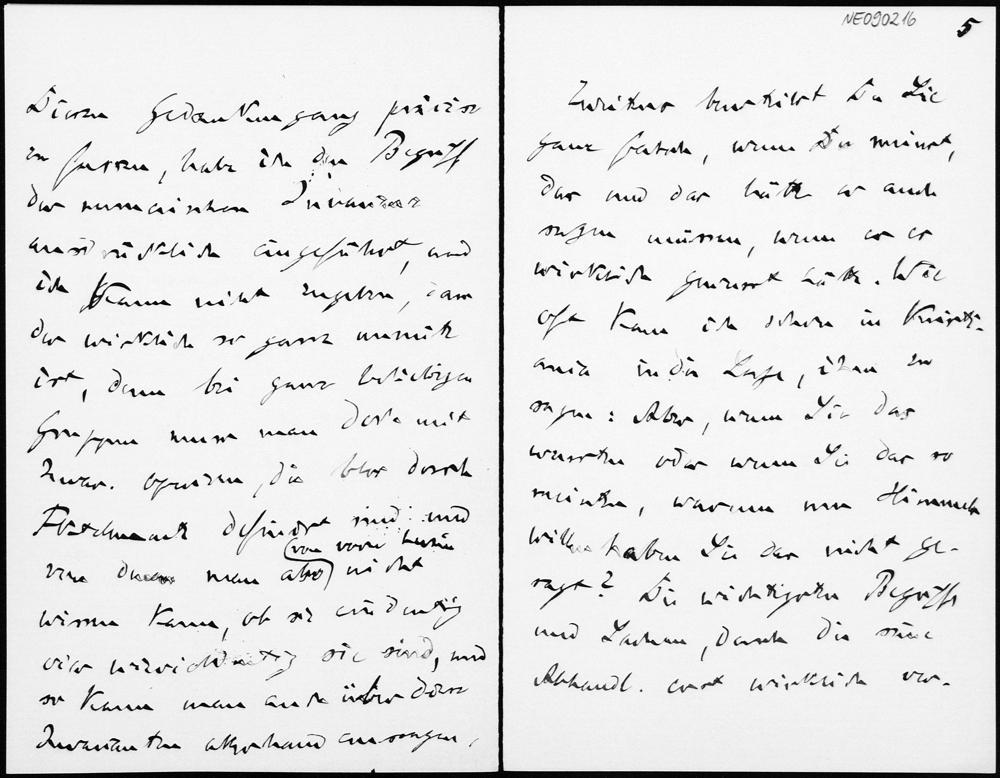 NE090216
5
Diesen Gedankengang präcise
zu fassen, habe ich den Begriff
der numerischen Invariante
ausdrücklich eingeführt, und
ich kann nicht zugeben, dass
der wirklich so ganz unnütz
ist, denn bei ganz beliebigen
Gruppen muss man doch mit
Invar. operiren, die blos durch
definirt sind und
von vorn herein
von denen man also nicht
wissen kann, ob sie eindeutig
oder wie vieldeutig sie sind, und
so kann man auch über diese
Invarianten allerhand aussagen,
Zweitens beurteilst Du Lie
ganz falsch, wenn Du meinst,
das und das hätte er auch
sagen müssen, wenn er es
wirklich gewusst hätte. Wie
oft kam ich schon in Kristi-
ania in die Lage, ihm zu
sagen: Aber, wenn Sie das
wussten oder wenn Sie das so
meinten, warum um Himmels
willen haben Sie das nicht ge-
sagt? Die wichtigsten Begriffe
und Sachen, durch die seine
Abhandl. erst wirklich ver-